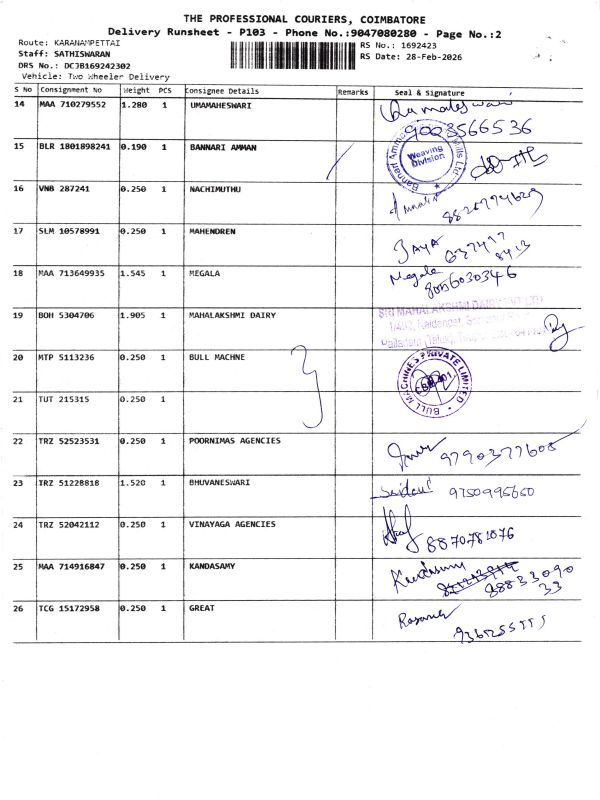 THE PROFESSIONAL COURIERS, COIMBATORE
Delivery Runsheet - P103 - Phone No.:9047080280 - Page No.:2
Route: KARANAMPETTAI
Staff: SATHISWARAN
DRS No.: DCJB169242302
Vehicle: Two Wheeler Delivery
RS No.: 1692423
RS Date: 28-Feb-2026
S No Consignment No Weight PCS Consignee Details Remarks Seal & Signature
14 MAA 710279552 1.280 1 UMAMAHESWARI Umamaheswari
9003566536
15 BLR 1801898241 0.190 1 BANNARI AMMAN Weaving Division
16 VNB 287241 0.250 1 NACHIMUTHU
17 SLM 10578991 0.250 1 MAHENDREN JAYA
18 MAA 713649935 1.545 1 MEGALA Megala
8056030346
19 BOH 5304706 1.905 1 MAHALAKSHMI DAIRY SRI MAHALAKSHMI DAIRY PVT LTD
20 MTP 5113236 0.250 1 BULL MACHNE BULL MACHINES PRIVATE LIMITED
21 TUT 215315 0.250 1
22 TRZ 52523531 0.250 1 POORNIMAS AGENCIES 9790377608
23 TRZ 51228818 1.520 1 BHUVANESWARI 9750995650
24 TRZ 52042112 0.250 1 VINAYAGA AGENCIES 8870781076
25 MAA 714916847 0.250 1 KANDASAMY Kandasamy
88833090
33
26 TCG 15172958 0.250 1 GREAT